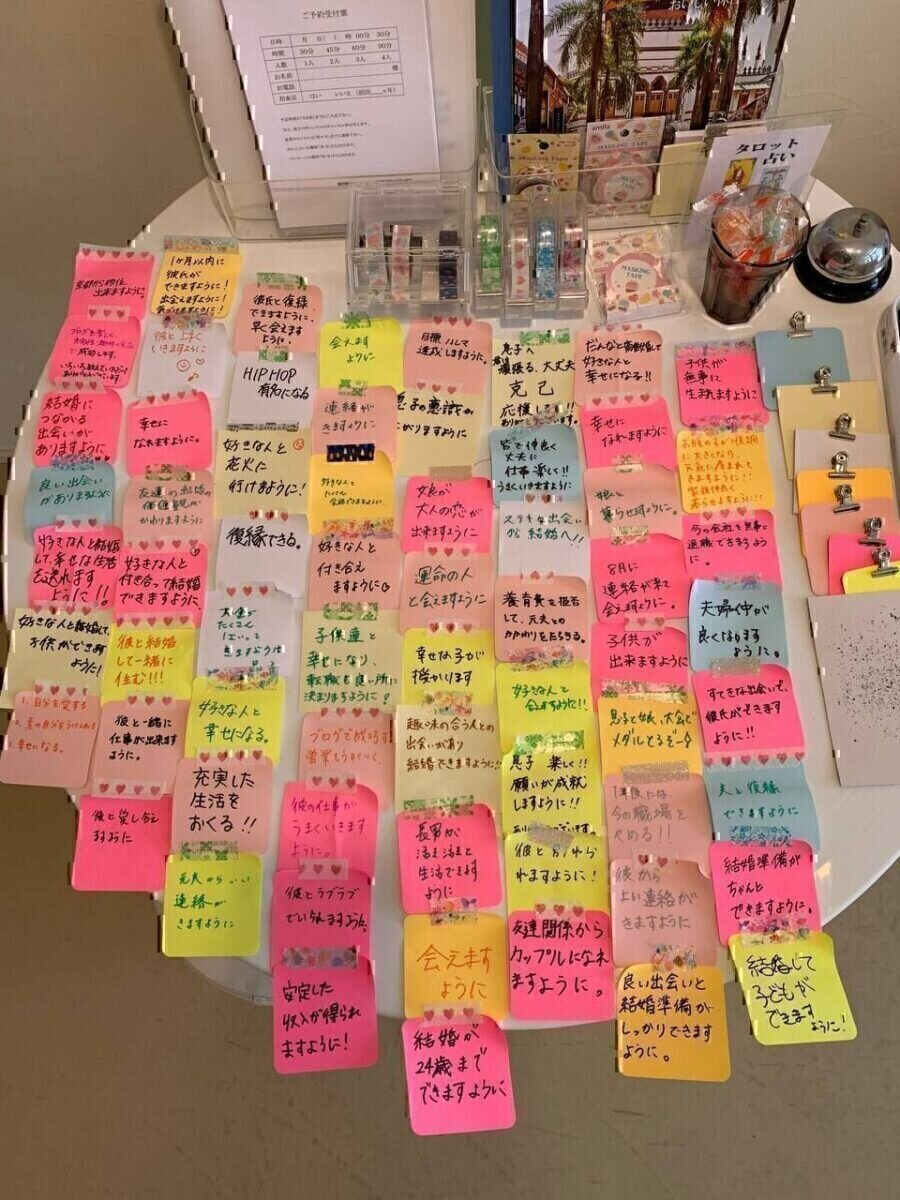 ご予約受付票
日時 月 日( ) 時 00分 30分
時間 30分 45分 60分 90分
人数 1人 2人 3人 4人
お名前 様
お電話
相来店 はい いいえ (前回 ヶ月)
おいしい
amifa
Masking Tape
MASKING TAPE
タロット
占い
amifa
MASKING
TAPE
京都から移住
出来ますように。
で成功します。
ありがとうございます。
結婚に
つながる
出会いが
ありますように
良い出会い
がありますように
好きな人と結婚
して、幸せな生活
を送れます
ように!!
好きな人と結婚して、
お供ができます
ように!
1. 自分を愛する
3. 幸せになる。
1ヶ月以内に
彼氏が
できますように!
出会えますように!
彼と上手く
いきますように
幸せに
なれますように。
友達の結婚の
価値観が
かわりますように
好きな人と
付き合って結婚
できますように
彼と結婚
して一緒に
住む!!!
彼と一緒に
仕事が出来ます
ように。
彼と愛し合え
ますように
彼氏と復縁
できますように。
早く会えます
ように。
HIPHOP
有名になる
好きな人と
花火に
行けますように!
復縁できる。
お金が
たくさん
はいって
きますように
好きな人と
幸せになる。
充実した
生活を
おくる!!
元夫からいい
連絡が
きますように
会えます
ように
連絡が
きますように
好きな人と
たくさん
会話できますように。
好きな人と
付き合え
ますように
子供達と
幸せになり、
転職も良い所に
決まりますように!
ブログで成功す
営業もうまくいく。
彼の仕事が
うまくいきます
ように。
彼とラブラブ
でいられますように。
安定した
収入が得られ
ますように!
目標
達成しますように。
息子の意識が
がりますように
娘が
大人の恋が
出来ますように
運命の人
と会えますように
幸せな子が
授かります
趣味の合う人との
出会いがあり
結婚できますように!!
長男が
活き活きと
生活できます
ように
会えます
ように
結婚が
24歳まで
できますように
息子へ
頑張る、大丈夫
克己
応援します!!
ありがとうございます。
皆で仲良く
丈夫に
仕事楽しく!!
うまくいきますように
ステキな出会い
から結婚へ!!
養育費を拒否
して、元夫との
かかわりをたちきる。
好きな人と
会えますように!!
息子 楽しく!!
願いが成就
しますように!!
ありがとうございます。
彼と
れますように!
友達関係から
カップルになれ
ますように。
だんなと離婚して
好きな人と
幸せになる!!
幸せに
なれますように
娘と
暮らせますように。
8月に
連絡が来て
会えますように。
子供が
出来ますように
息子と娘、大会で
メダルとるぞー
1年後には
今の職場を
やめる!!
彼から
よい連絡が
きますように
良い出会いと
結婚準備が
しっかりできます
ように。
子供が
無事に
生まれますように
お腹の子が順調
に大きくなり、
元気に産まれて
きますように!!
家族仲良く
暮らせますように!!
今の会社を無事に
退職できますよう
に。
夫婦仲が
良くなります
ように。
すてきな出会いで、
彼氏ができます
ように!!
夫と復縁
できますように
結婚準備が
ちゃんと
できますように!
結婚して
子どもが
できます
ように!